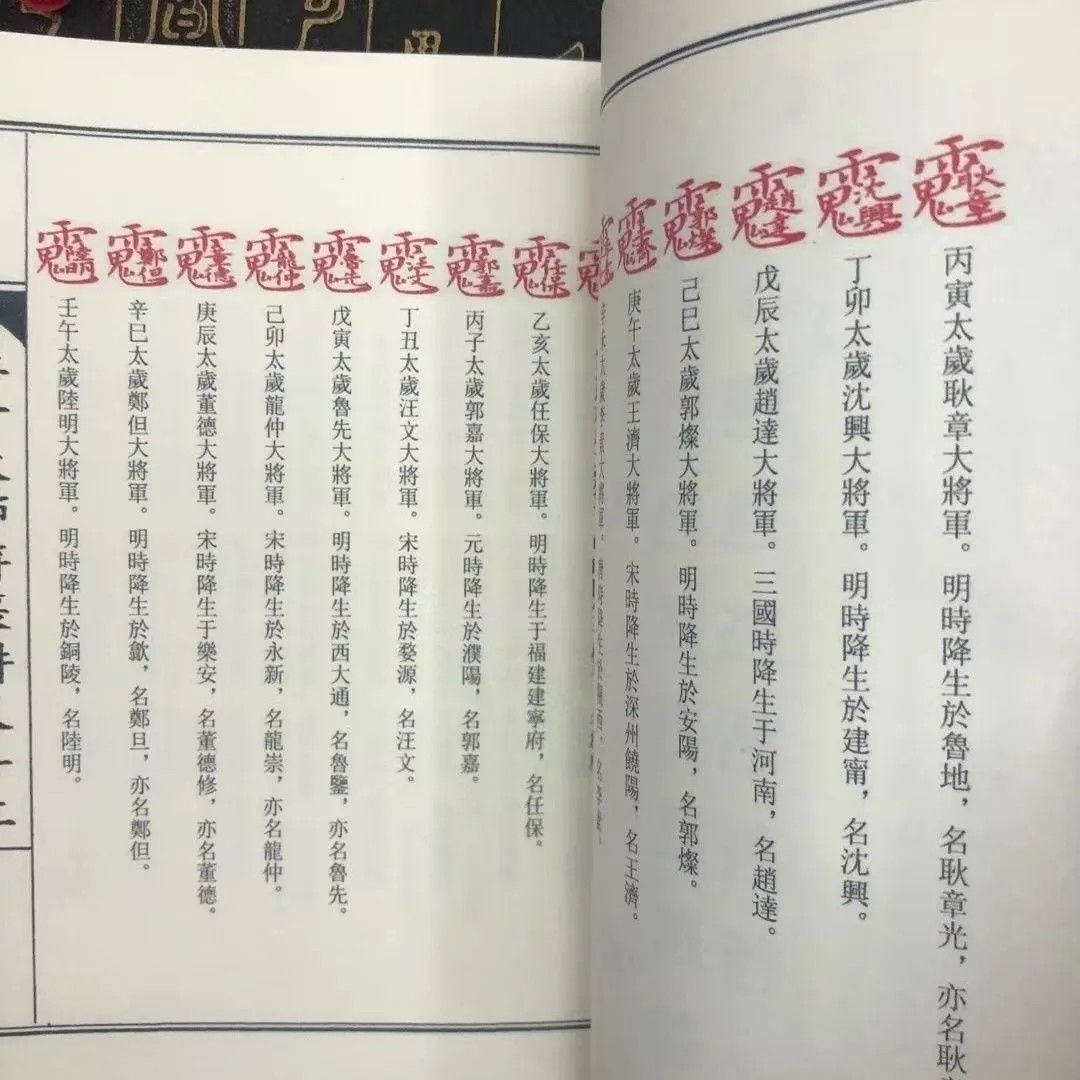 丙寅太歲耿章大將軍。明時降生於魯地，名耿章光，亦名耿
丁卯太歲沈興大將軍。明時降生於建甯，名沈興。
戊辰太歲趙達大將軍。三國時降生于河南，名趙達。
己巳太歲郭燦大將軍。明時降生於安陽，名郭燦。
庚午太歲王濟大將軍。宋時降生於深州饒陽，名王濟。
乙亥太歲任保大將軍。明時降生于福建建寧府，名任保。
丙子太歲郭嘉大將軍。元時降生於濮陽，名郭嘉。
丁丑太歲汪文大將軍。宋時降生於婺源，名汪文。
戊寅太歲魯先大將軍。明時降生於西大通，名魯鑒，亦名魯先。
己卯太歲龍仲大將軍。宋時降生於永新，名龍崇，亦名龍仲。
庚辰太歲董德大將軍。宋時降生于樂安，名董德修，亦名董德。
辛巳太歲鄭但大將軍。明時降生於歙，名鄭旦，亦名鄭但。
壬午太歲陸明大將軍。明時降生於銅陵，名陸明。